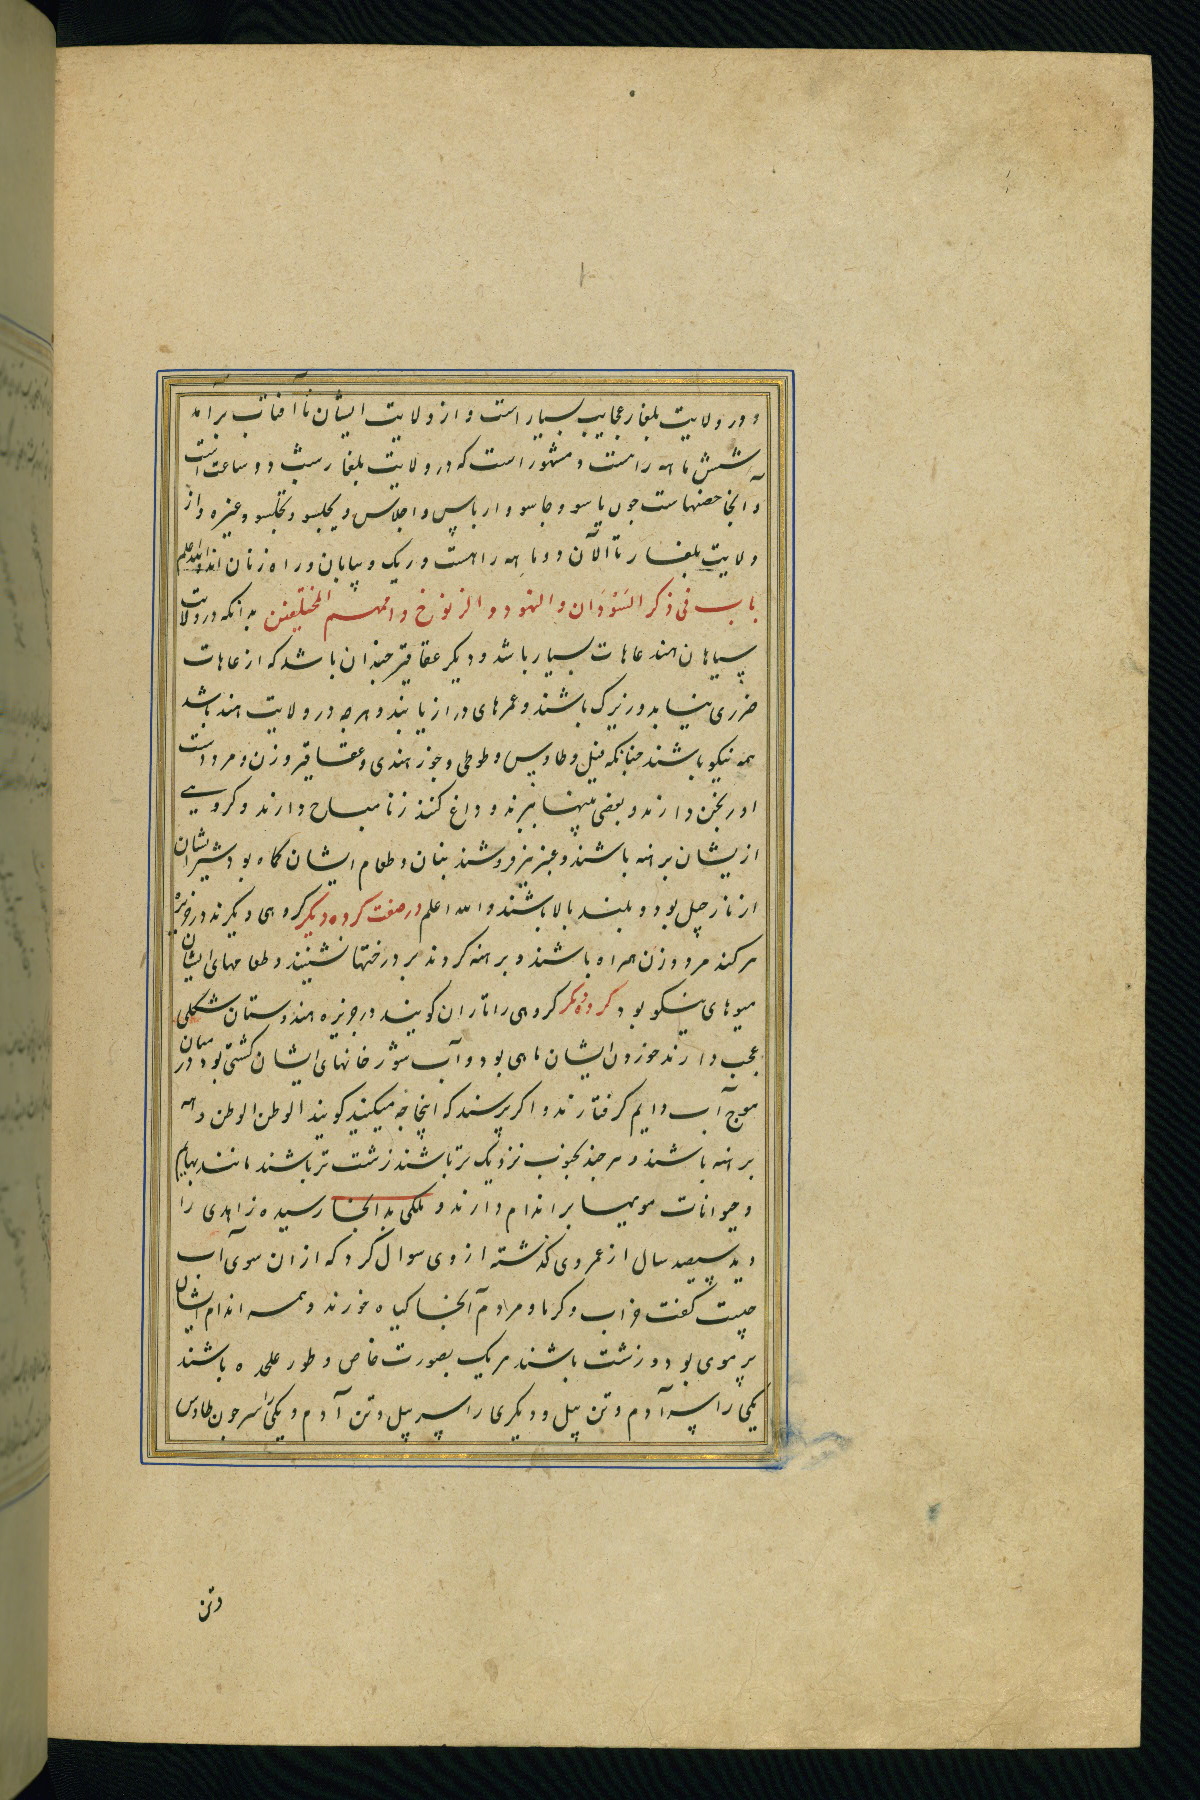 و در ولایت بلغار عجایب بسیار است و از ولایت ایشان تا آفتاب برآمد
شش ماهه راهست و مشهور است که در ولایت بلغار شب دو ساعت است
و آنجا حصنهاست چون یاسو و جاسو و ارباس و اجلاس و یجلسو و تجلسو و غیره و از
ولایت بلغار تا الان دو ماهه راهست و ریک و بیابان و راه زنان اند والله اعلم
باب فی ذکر السودان و الهنود و الزنوخ و اممهم المختلفین بدانکه در ولایت
سیاهان هند عاهات بسیار باشد و دیکر عقاقیر چندان باشد که از عاهات
ضرری نیاید و زیرک باشند و عمرهای دراز یابند و هرچه در ولایت هند باشد
همه نیکو باشند چنانکه فیل و طاوس و طوطی و جوز هندی و عقاقیر و زن و مرد دست
اورنجن دارند و بعضی بینها ببرند و داغ کنند زنا مباح دارند و کروهی
ازیشان برهنه باشند و عنبر فروشند بنان و طعام ایشان کاه بود شیر ایشان
از نارجیل بود و بلند بالا باشند والله اعلم در صفت کروه دیکر کروهی دیکرند در جزیره
سرکند مرد و زن همراه باشند و برهنه کردند بر درختها نشینند و طعامهای ایشان
میوهای نیکو بود کروه دیکر کروهی را تاران کویند در جزیره هندوستان شکلی
عجب دارند خوردن ایشان ماهی بود و آب شور خانهای ایشان کشتی بود در میان
موج آب دایم کرفتارند و اکر پرسند که اینجا چه میکنید کویند الوطن الوطن و همه
برهنه باشند و هر چند بجنوب نزدیک تر باشند زشت تر باشند مانند بهایم
و حیوانات مویها بر اندام دارند و ملکی بدانجا رسیده زاهدی را
دید سیصد سال از عمر وی کذشته از وی سوال کرد که از ان سوی آب
چیست کفت خراب و کرما و مردم آنجا کیاه خورند و همه اندام ایشان
پر موی بود و زشت باشند هر یک بصورت خاص و طور علیحده باشند
یکی را سر آدم و تن پیل و دیکری را سر پیل و تن آدم و یکی را سر چون طاوس
و تن